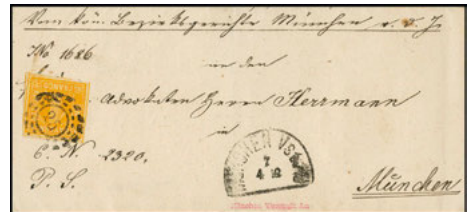 Vom Kön. Bezirksgerichte München r. d. J.
No 1686
an den
Advokaten Herrn Herrmann
in
E. N. 2320.
P. S.
München
MÜNCHEN
7
4